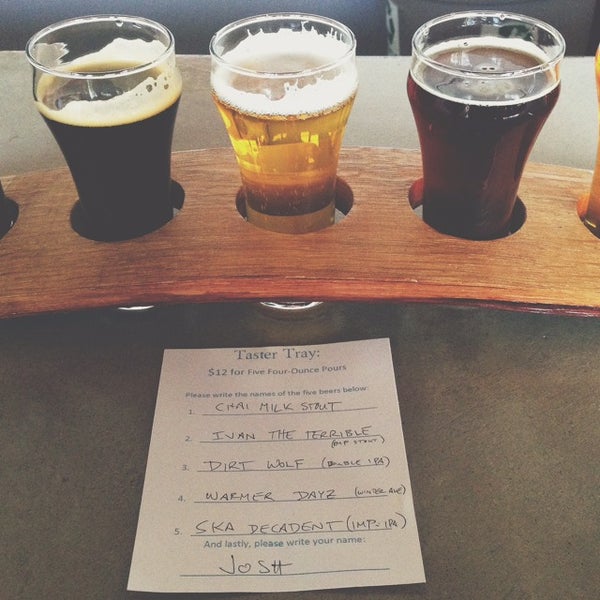 Taster Tray:
$12 for Five Four-Ounce Pours
Please write the names of the five beers below:
1. CHAI MILK STOUT
2. IVAN THE TERRIBLE (IMP STOUT)
3. DIRT WOLF (DOUBLE IPA)
4. WARMER DAYZ (WINTER ALE)
5. SKA DECADENT (IMP. IPA)
And lastly, please write your name:
JOSH